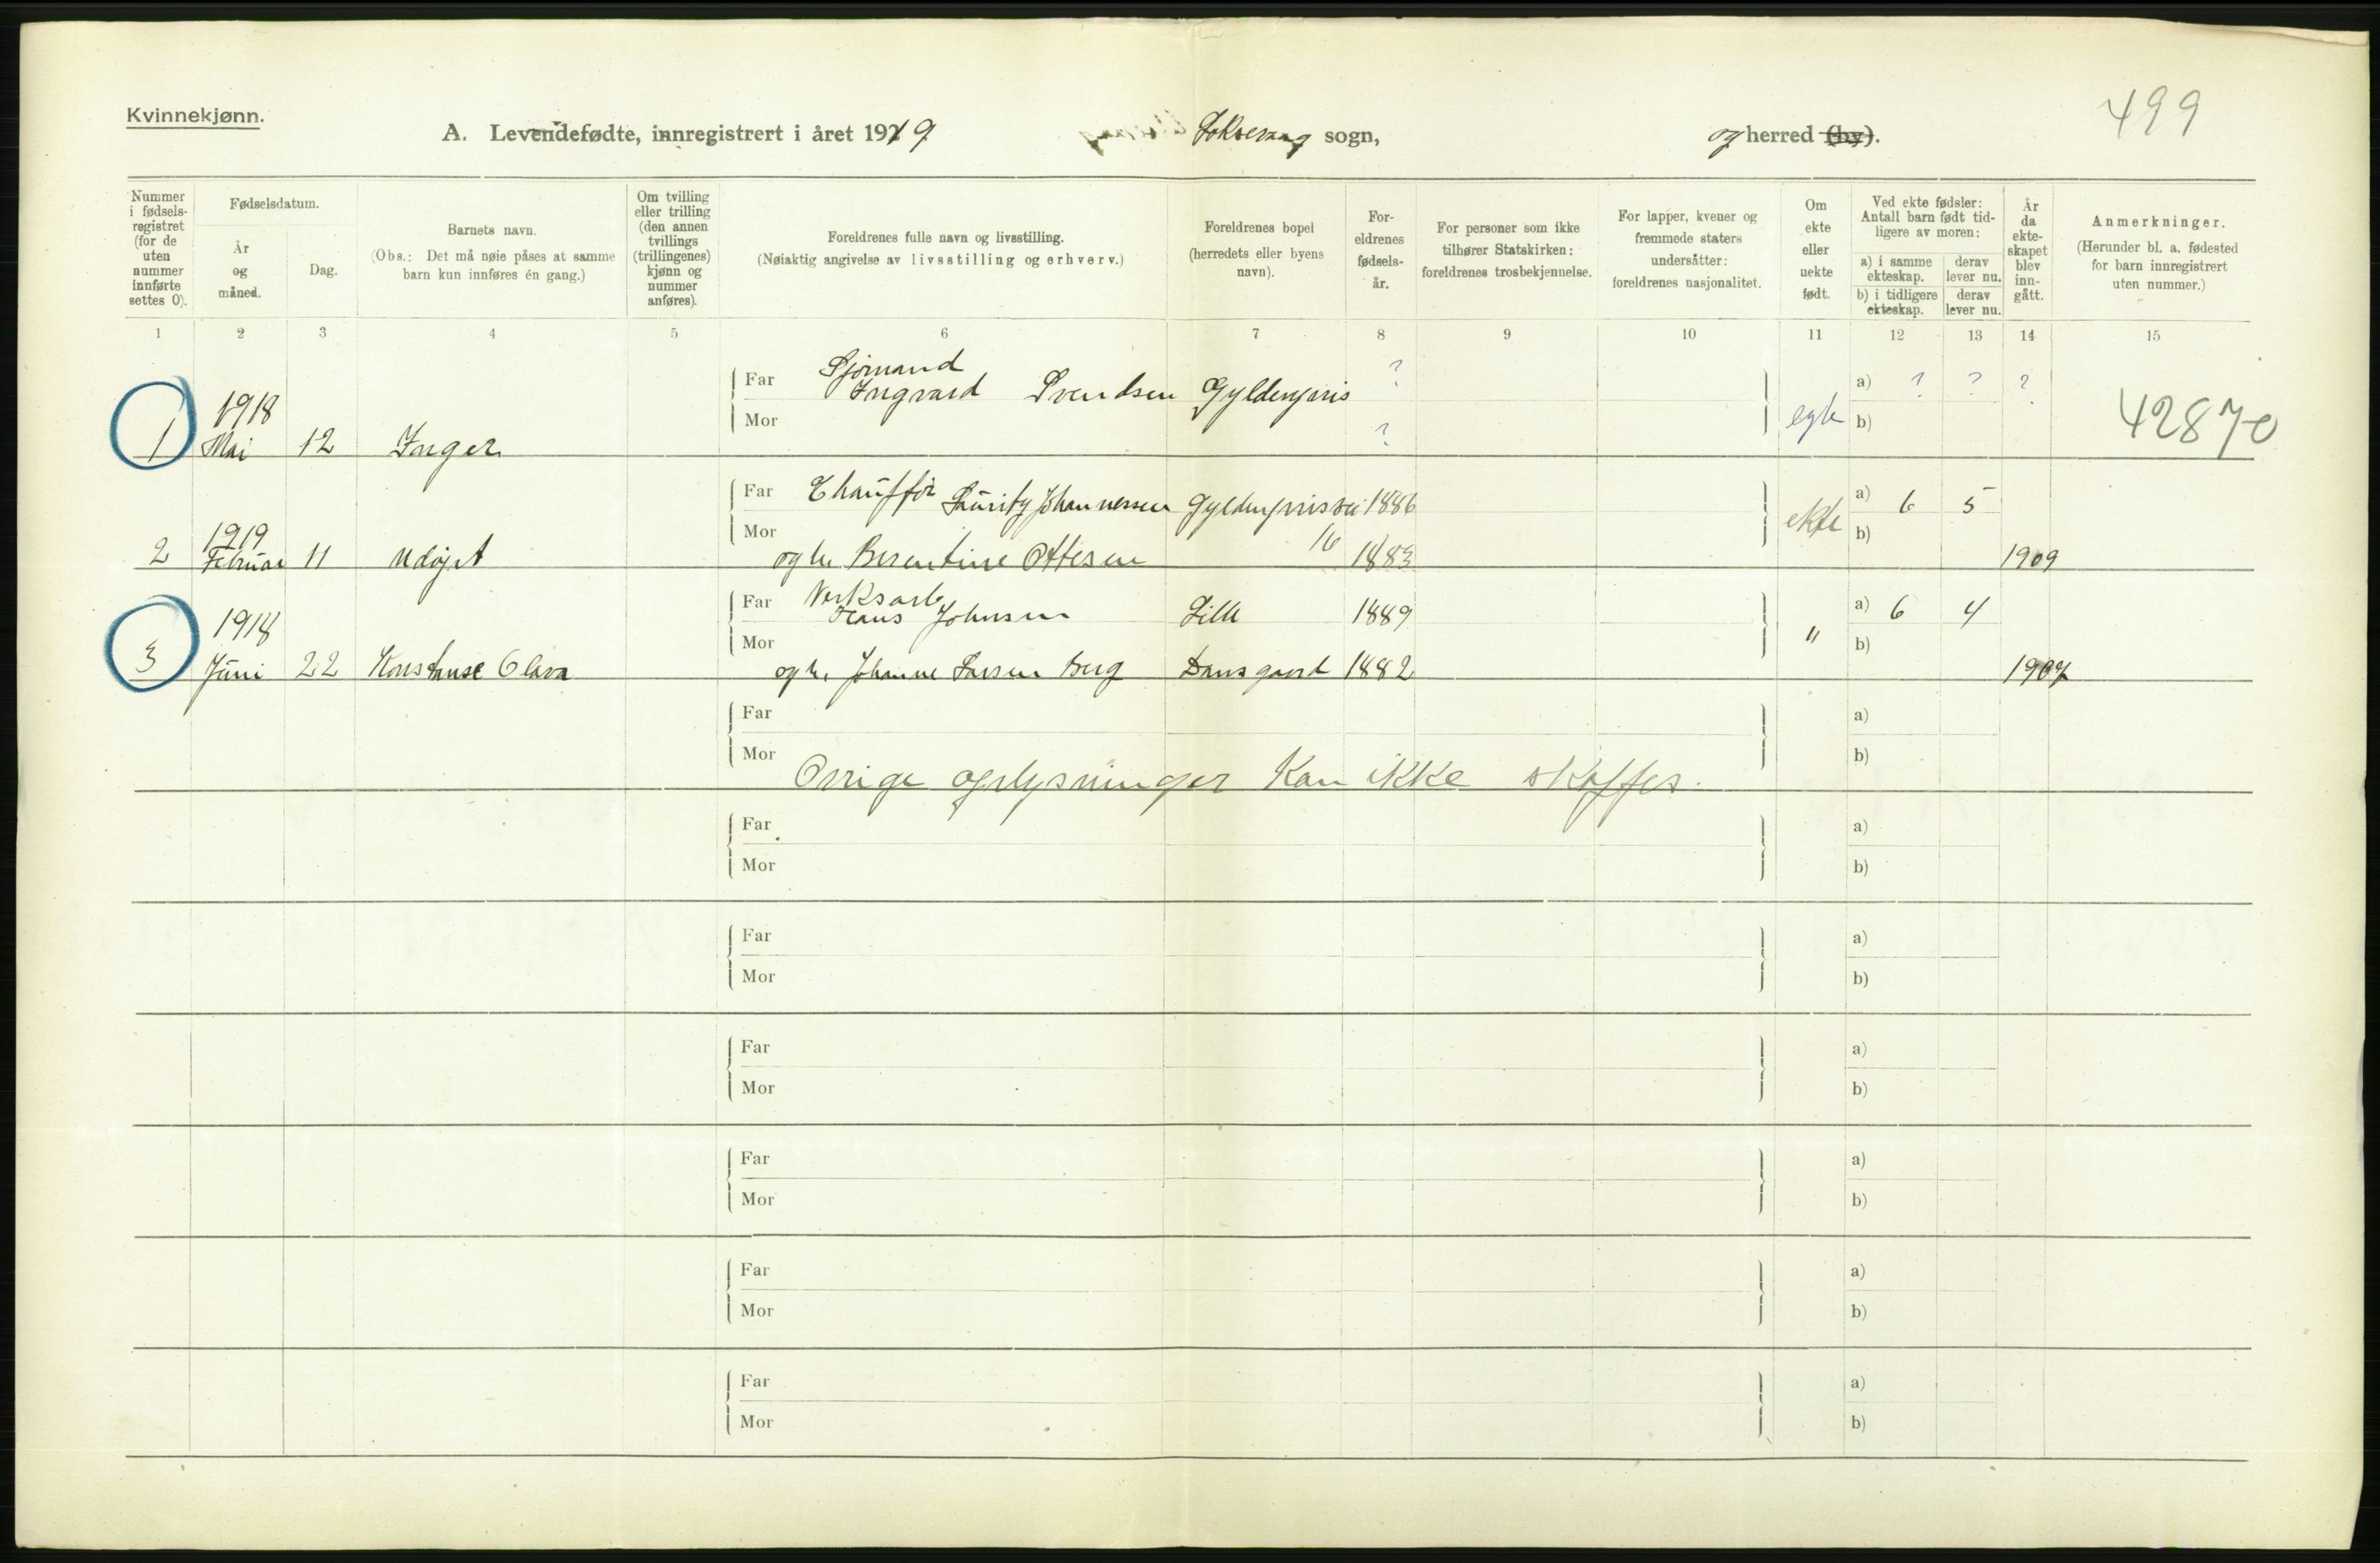 Kvinnekjønn.
499
A. Levendefødte, innregistrert i året 1919 Loksevaag sogn, og herred (by).
Nummer i fødsels-registret (for de uten nummer innførte settes 0).
Fødselsdatum.
År og måned.
Dag.
Barnets navn.
(Obs.: Det må nøie påses at samme barn kun innføres én gang.)
Om tvilling eller trilling (den annen tvillings (trillingenes) kjønn og nummer anføres).
Foreldrenes fulle navn og livsstilling.
(Nøiaktig angivelse av livsstilling og erhverv.)
Foreldrenes bopel (herredets eller byens navn).
For-eldrenes fødsels-år.
For personer som ikke tilhører Statskirken: foreldrenes trosbekjennelse.
For lapper, kvener og fremmede staters undersåtter: foreldrenes nasjonalitet.
Om ekte eller uekte født.
Ved ekte fødsler: Antall barn født tid-ligere av moren:
a) i samme ekteskap. derav lever nu.
b) i tidligere ekteskap. derav lever nu.
År da ekte-skapet blev inn-gått.
Anmerkninger.
(Herunder bl. a. fødested for barn innregistrert uten nummer.)
1 2 3 4 5 6 7 8 9 10 11 12 13 14 15
Far Sjömand ?
Ingvard Svendsen Gyldenpris a) ? ? ?
1918 Mor ? egte b) 42870
1 Mai 12 Inger
Far Chauffør Lauritz Johannessen Gyldenprisvei 1886 a) 6 5
1919 Mor 16 ekte b)
2 Februar 11 Udøpt og h. Berentine Ottesen 1883 1909
Far Verksarb.
Hans Johnsen Lille 1889 a) 6 4
1918 Mor " b)
3 Juni 22 Konstanse Olava og h. Johanne Larsen Berg Damsgaard 1882 1907
Far a)
Mor b)
Övrige oplysninger kan ikke skaffes.
Far a)
Mor b)
Far a)
Mor b)
Far a)
Mor b)
Far a)
Mor b)
Far a)
Mor b)
Far a)
Mor b)